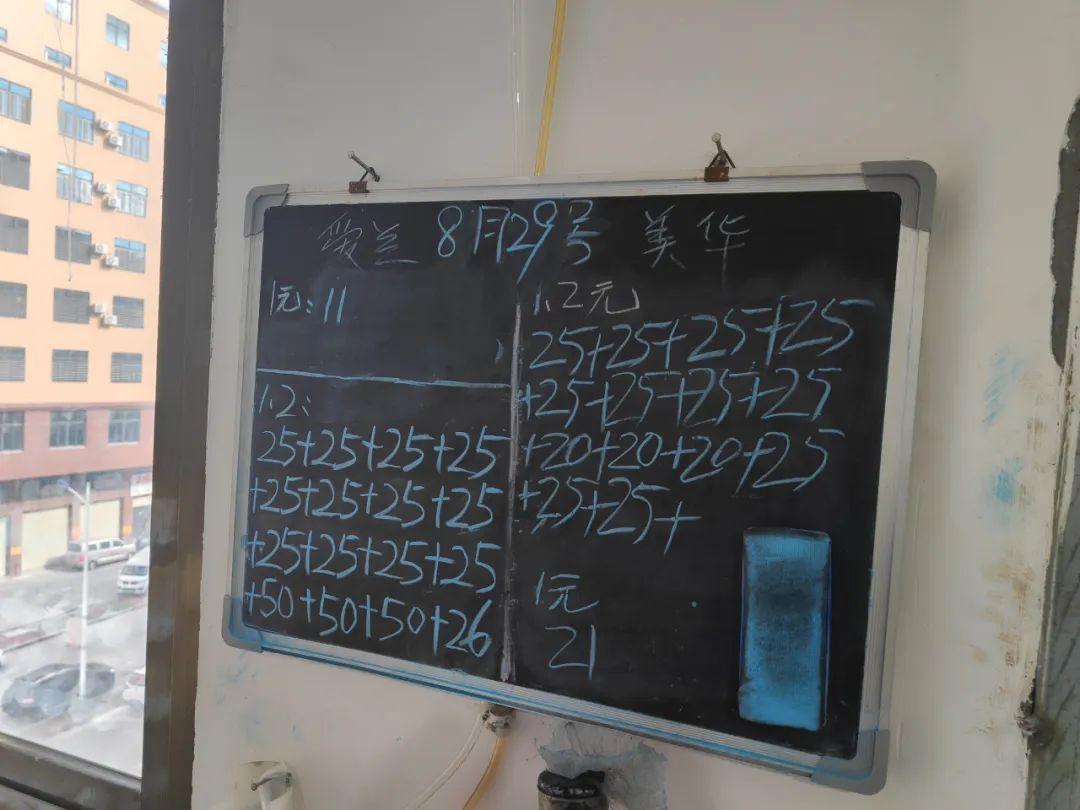 爱兰 8月29号 美华
1元:11
1.2:
25+25+25+25
+25+25+25+25
+25+25+25+25
+50+50+50+26
1.2元
25+25+25+25
+25+25+25+25
+20+20+20+25
+25+25+
1元
21